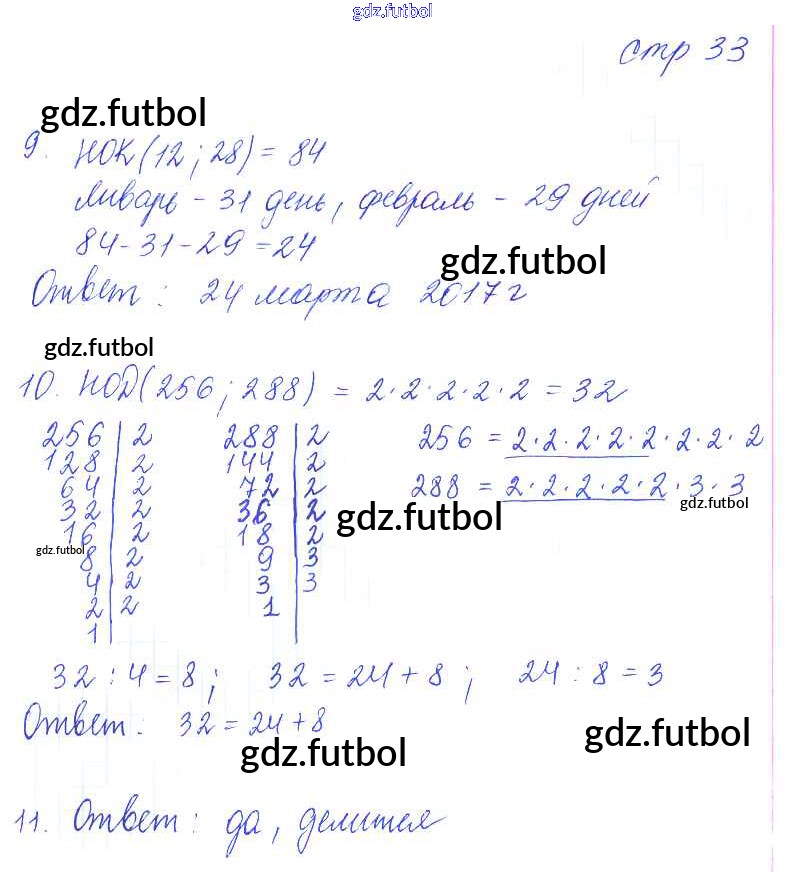 gdz.futbol
стр 33
gdz.futbol
9. НОК(12; 28) = 84
Январь - 31 день, февраль - 29 дней
84 - 31 - 29 = 24
gdz.futbol
Ответ: 24 марта 2017 г
gdz.futbol
10. НОД(256; 288) = 2·2·2·2·2 = 32
256 | 2 288 | 2 256 = 2·2·2·2·2·2·2·2
128 | 2 144 | 2
64 | 2 72 | 2 288 = 2·2·2·2·2·3·3
gdz.futbol
32 | 2 36 | 2
gdz.futbol
16 | 2 18 | 2
gdz.futbol
8 | 2 9 | 3
4 | 2 3 | 3
2 | 2 1
1
32 : 4 = 8; 32 = 24 + 8; 24 : 8 = 3
Ответ: 32 = 24 + 8
gdz.futbol
gdz.futbol
11. Ответ: да, делится